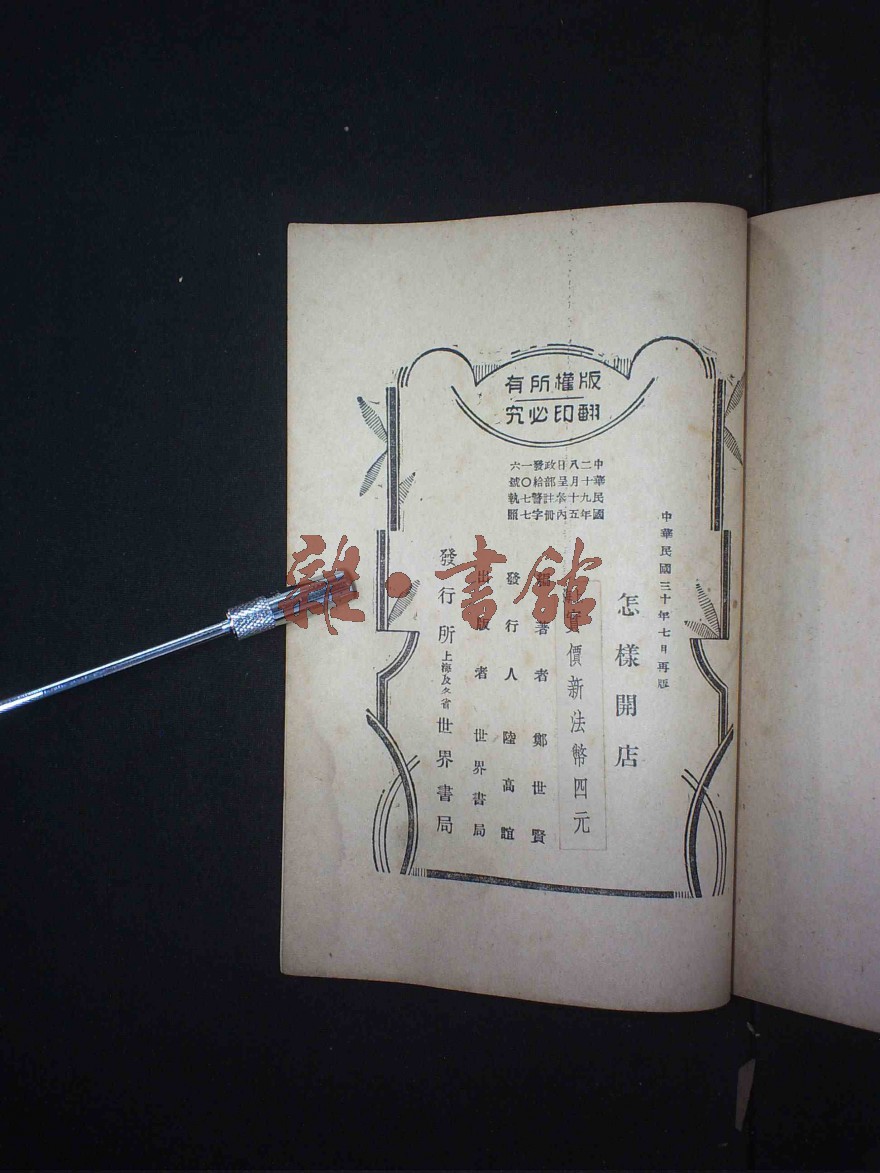 版權所有
翻印必究
中華民國
二十九年
八月十五
日呈奉內
政部註冊
發給警字
一〇七七
六號執照
中華民國三十年七月再版
怎樣開店
實價新法幣四元
編著者 鄭世賢
發行人 陸高誼
出版者 世界書局
發行所 上海及各省 世界書局
雜·書館